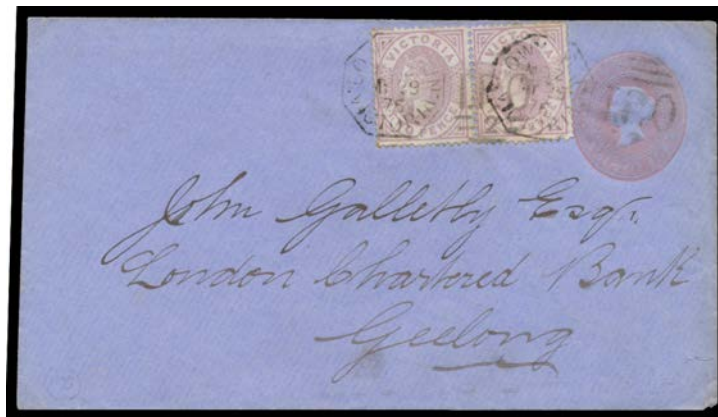 VICTORIA VICTORIA
John Galletly Esqr.
London Chartered Bank
Geelong